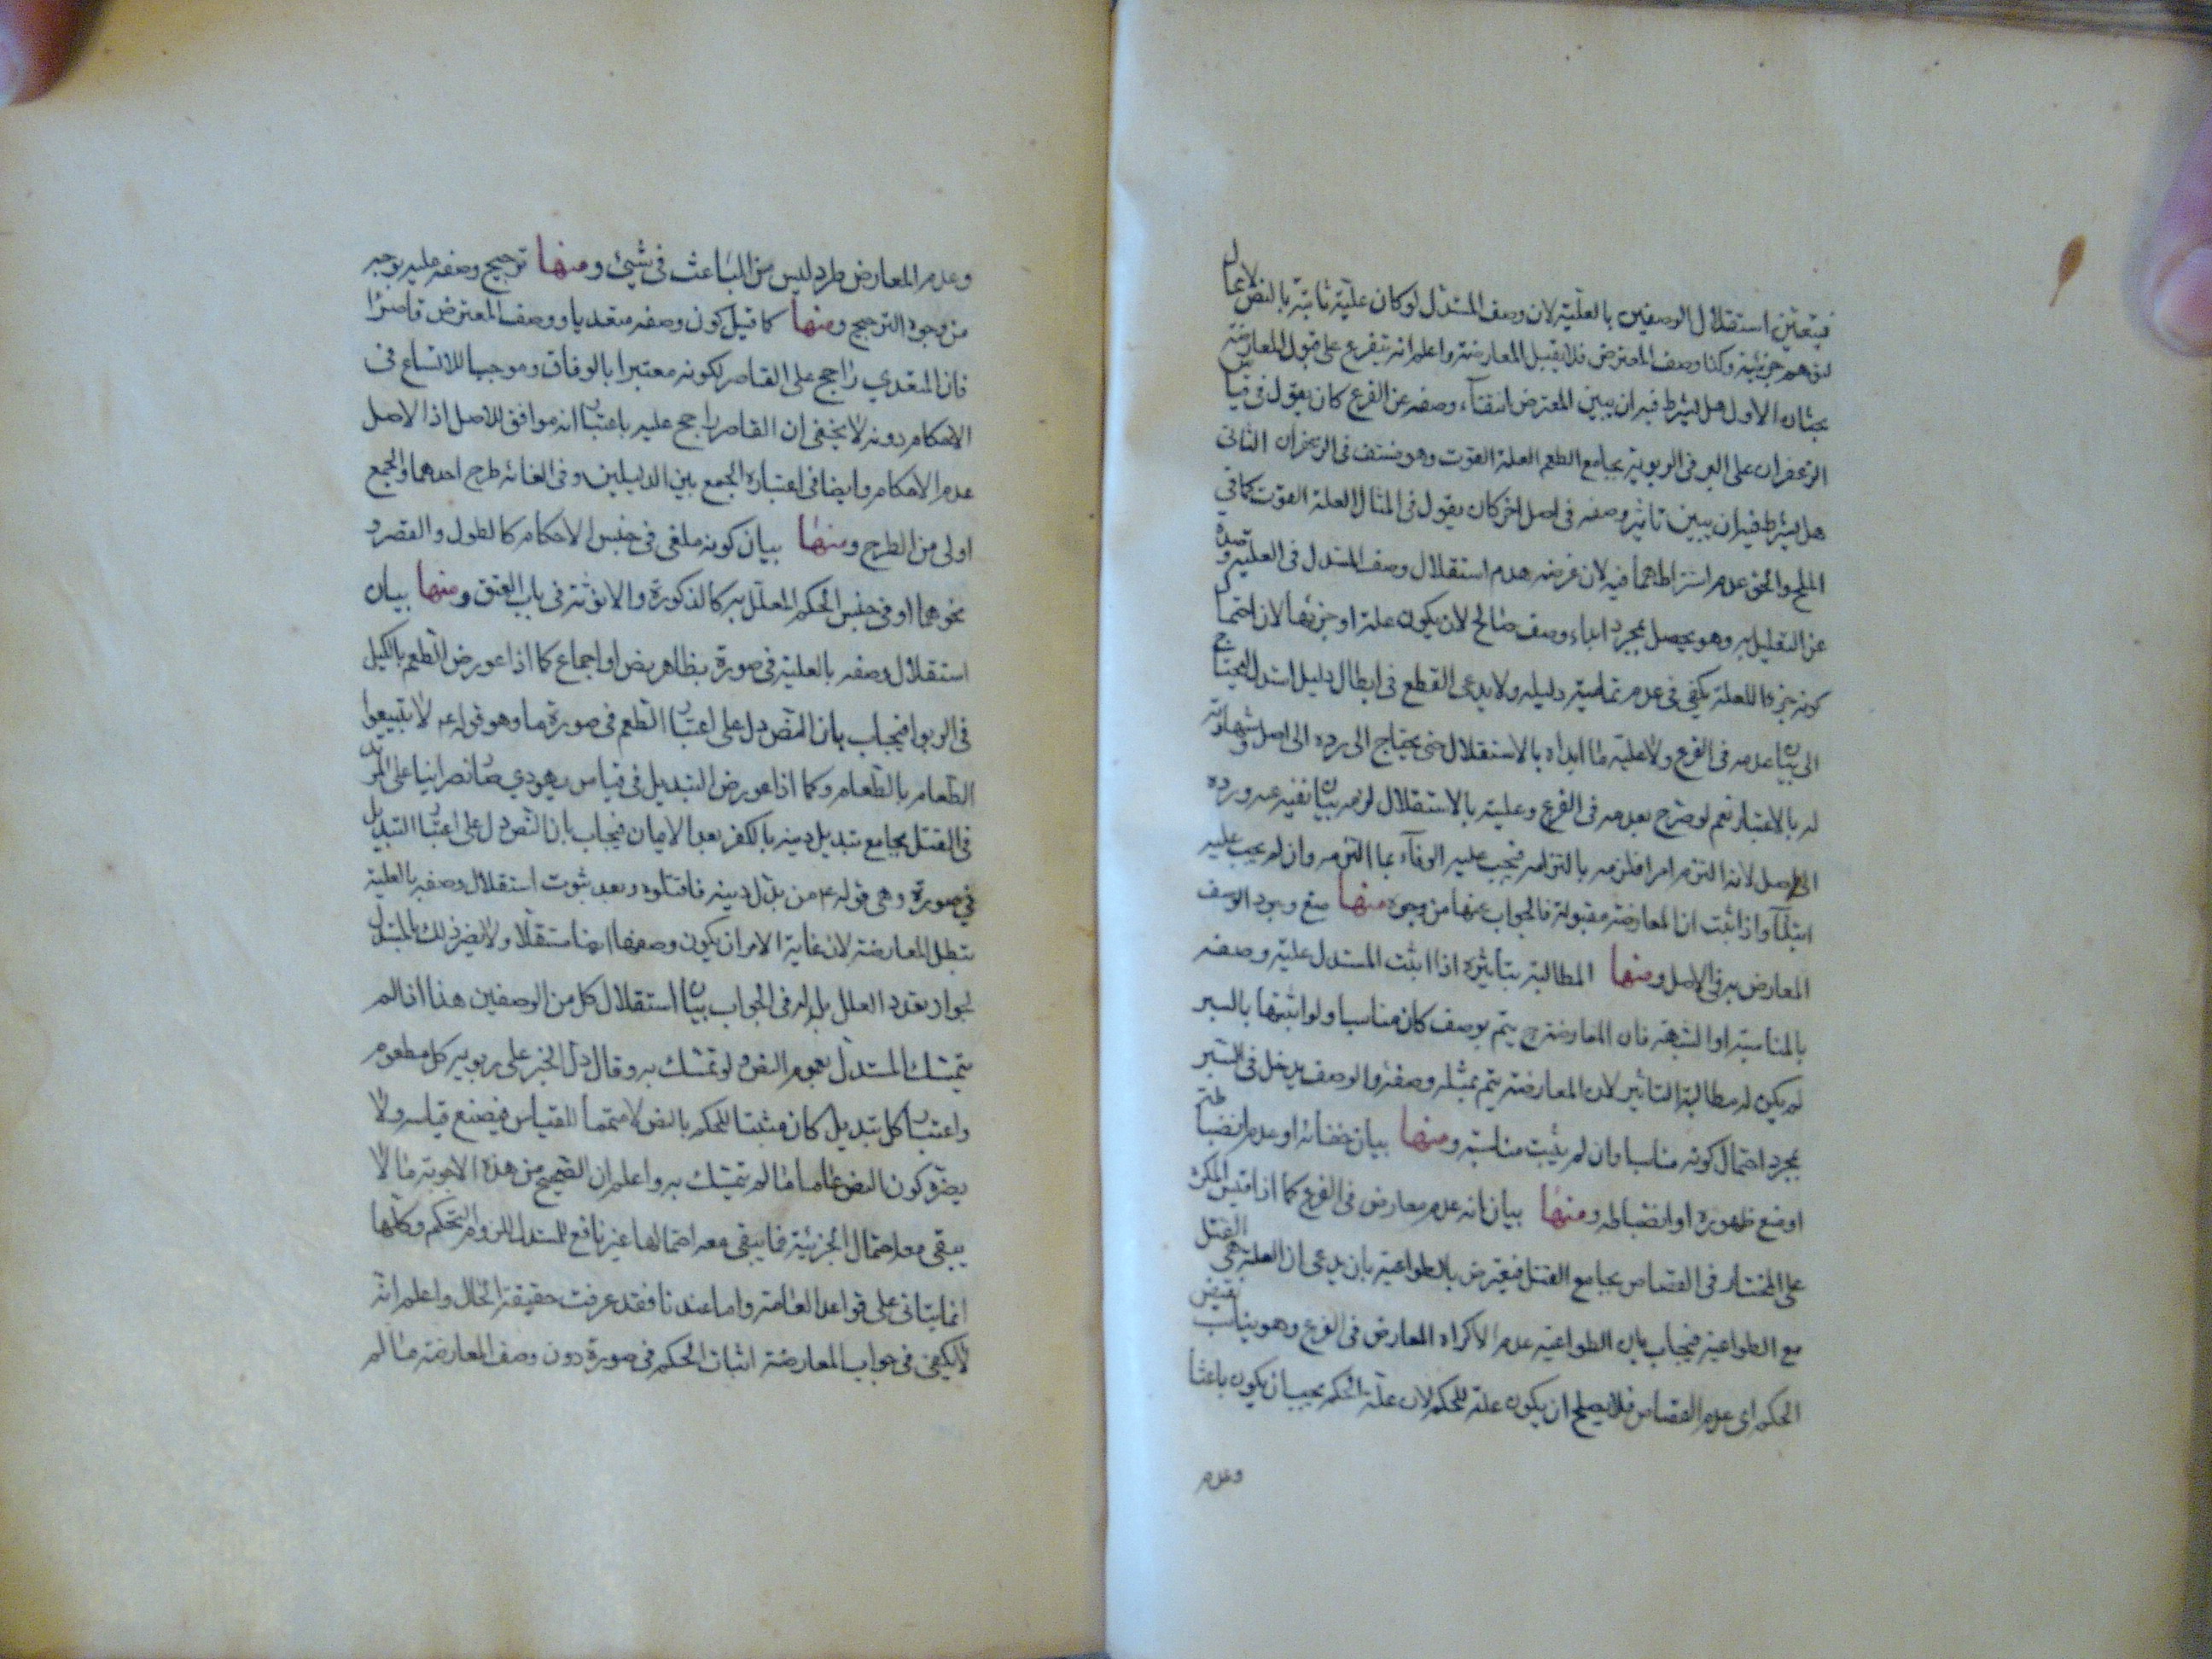 فيتعين استقلال الوصفين بالعلية لان وصف المستدل لو كان علية ثابتة بالنص لا عمال
لتوهم جزئيته وكذا وصف المعترض فلا يقبل المعارضة واعلم انه يتفرع على قبول المعارضة
بحثان الاول هل يشترط فيه ان يبين المعترض انتفاء وصفه عن الفرع كان يقول في قياس
الزعفران على البر في الربوية بجامع الطعم العلة القوت وهو منتف في الزعفران الثاني
هل يشترط فيه ان يبين تاثير وصفه في اصل اخر كان يقول في المثال العلة القوت كما في
الملح والحق عدم اشتراطهما فيه لان غرضه هدم استقلال وصف المستدل في العلية وصده
عن التعليل به وهو يحصل بمجرد ابداء وصف صالح لان يكون علة او جزئها لان احتمال
كونه جزءا للعلة يكفي في عدم تمامية دليله ولا يدعى القطع في ابطال دليل استدل ليحتاج
الى بيان عدمه في الفرع ولا علية ما ابداه بالاستقلال حتى يحتاج الى رده الى اصل وشهادته
له بالاعتبار نعم لو صرح بعدمه في الفرع وعلية بالاستقلال لزمه بيان نفيه عنه ورده
الى اصل لانه التزم امرا فلزمه بالتزامه فيجب عليه الوفاء بما التزمه وان لم يجب عليه
ابتداء واذا ثبت ان المعارضة مقبولة فالجواب عنها من وجوه منها منع وجود الوصف
المعارض به في الاصل ومنها المطالبة بتاثيره اذا اثبت المستدل علية وصفه
بالمناسبة او الشبهة فان المعارضة ح يتم بوصف كان مناسبا ولو اثبتها بالسبر
لم يكن له مطالبة التاثير لان المعارضة يتم بمثله وصفه والوصف يدخل في السبر
بمجرد احتمال كونه مناسبا وان لم يثبت مناسبته ومنها بيان خفائه او عدم انضباطه
او منع ظهوره او انضباطه ومنها بيان انه عدم معارض في الفرع كما اذا قيس المكره
على المختار في القصاص بجامع القتل فيعترض بالطواعية بان يدعى ان العلة هي القتل
مع الطواعية فيجاب بان الطواعية عدم الاكراه المعارض في الفرع وهو يناسب نقيض
الحكم اي عدم القصاص فلا يصلح ان يكون علة للحكم لان علة الحكم يجب ان يكون باعثا
وعدم
وعدم المعارض طرد ليس من الباعث في شيئ ومنها ترجيح وصفه عليه بوجه
من وجوه الترجيح ومنها كما قيل كون وصفه متعديا ووصف المعترض قاصرا
فان المتعدي راجح على القاصر لكونه معتبرا بالوفاق وموجبا للاتساع في
الاحكام دونه لا يخفى ان القاصر راجح عليه باعتبار انه موافق للاصل اذ الاصل
عدم الاحكام وايضا في اعتباره الجمع بين الدليلين وفي الغائه طرح احدهما والجمع
اولى من الطرح ومنها بيان كونه ملغى في جنس الاحكام كالطول والقصر و
نحوهما او في جنس الحكم المعلل به كالذكورة والانوثة في باب العتق ومنها بيان
استقلال وصفه بالعلية في صورة بظاهر نص او اجماع كما اذا عورض الطعم بالكيل
في الربوا فيجاب بان النص دل على اعتبار الطعم في صورة ما وهو قوله ع لا تبيعوا
الطعام بالطعام وكما اذا عورض التبديل في قياس يهودي صار نصرانيا على المرتد
في القتل بجامع تبديل دينه بالكفر بعد الايمان فيجاب بان النص دل على اعتبار التبديل
في صورة وهي قوله ع من بدل دينه فاقتلوه وبعد ثبوت استقلال وصفه بالعلية
تبطل المعارضة لان غاية الامر ان يكون وصفها ايضا مستقلا ولا يضر ذلك بالمستدل
لجواز تعدد العلل بل له في الجواب بيان استقلال كل من الوصفين هذا اذا لم
يتمسك المستدل بعموم النص ولو تمسك به وقال دل الخبر على ربوية كل مطعوم
واعتبار كل تبديل كان مثبتا للحكم بالنص لا متمما للقياس فيضيع قياسه ولا
يضره كون النص عاما ما لم يتمسك به واعلم ان الصحيح من هذه الاجوبة ما لا
يبقى معه احتمال الجزئية فما يبقى معه احتمالها غير نافع للمستدل للزوم التحكم وكلها
انما يتاتى على قواعد العامة واما عندنا فقد عرفت حقيقة الحال واعلم انه
لا يكفي في جواب المعارضة اثبات الحكم في صورة دون وصف المعارضة ما لم